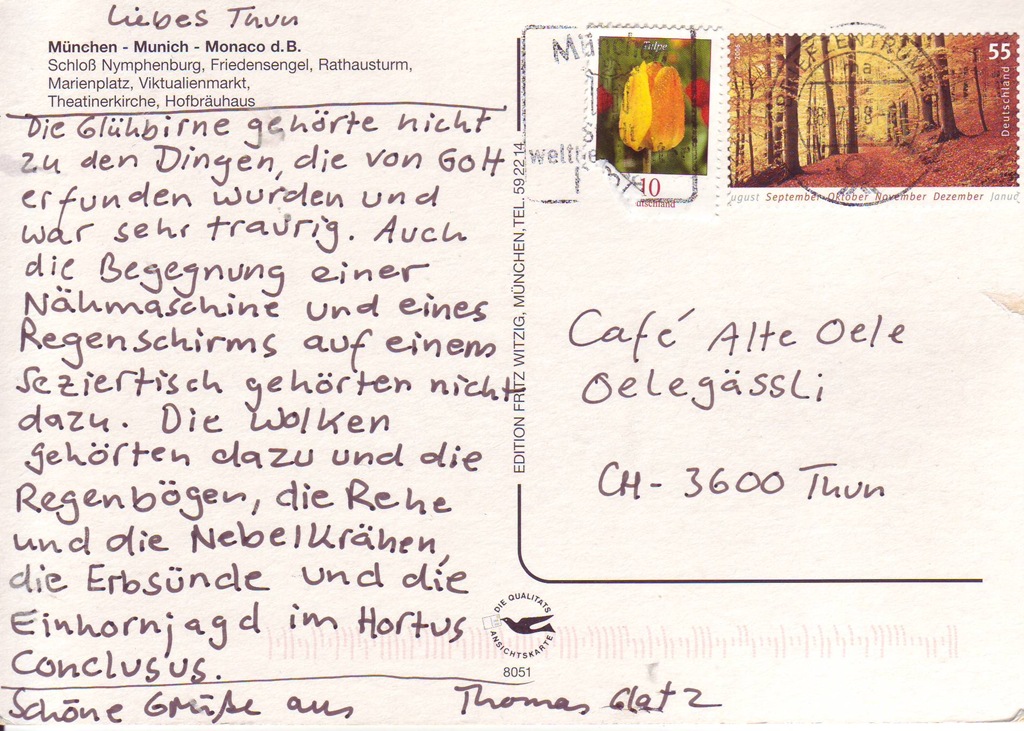 Liebes Thun
München - Munich - Monaco d.B.
Schloß Nymphenburg, Friedensengel, Rathausturm,
Marienplatz, Viktualienmarkt,
Theatinerkirche, Hofbräuhaus
Die Glühbirne gehörte nicht
zu den Dingen, die von Gott
erfunden wurden und
war sehr traurig. Auch
die Begegnung einer
Nähmaschine und eines
Regenschirms auf einem
Seziertisch gehörten nicht
dazu. Die Wolken
gehörten dazu und die
Regenbögen, die Rehe
und die Nebelkrähen,
die Erbsünde und die
Einhornjagd im Hortus
Conclusus.
Schöne Grüße aus Thomas Glatz
EDITION FRITZ WITZIG, MÜNCHEN, TEL. 59 22 14
DIE QUALITÄTS
ANSICHTSKARTE
8051
Mü
weltbe
Tulpe
10
utschland
55
Deutschland
ugust September Oktober November Dezember Janua
Café Alte Oele
Oelegässli
CH - 3600 Thun